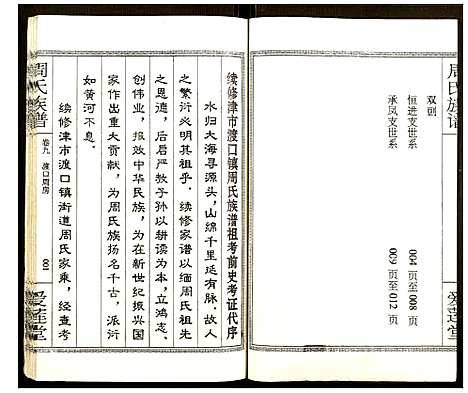 周氏族谱
爱莲堂
双剅
恒进支世系 004 页至 008 页
承凤支世系 009 页至 012 页
续修津市渡口镇周氏族谱祖考前史考证代序
水归大海寻源头，山绵千里延有脉。故人
之繁衍必明其祖乎。续修家谱以缅周氏祖先
之恩德，后启严教子孙以耕读为本，立鸿志、
创伟业，报效中华民族，为在新世纪振兴国
家作出重大贡献，为周氏族扬名千古，派衍
如黄河不息。
续修津市渡口镇街道周氏家乘，经查考
周氏族谱
卷九
渡口周房
001
爱莲堂